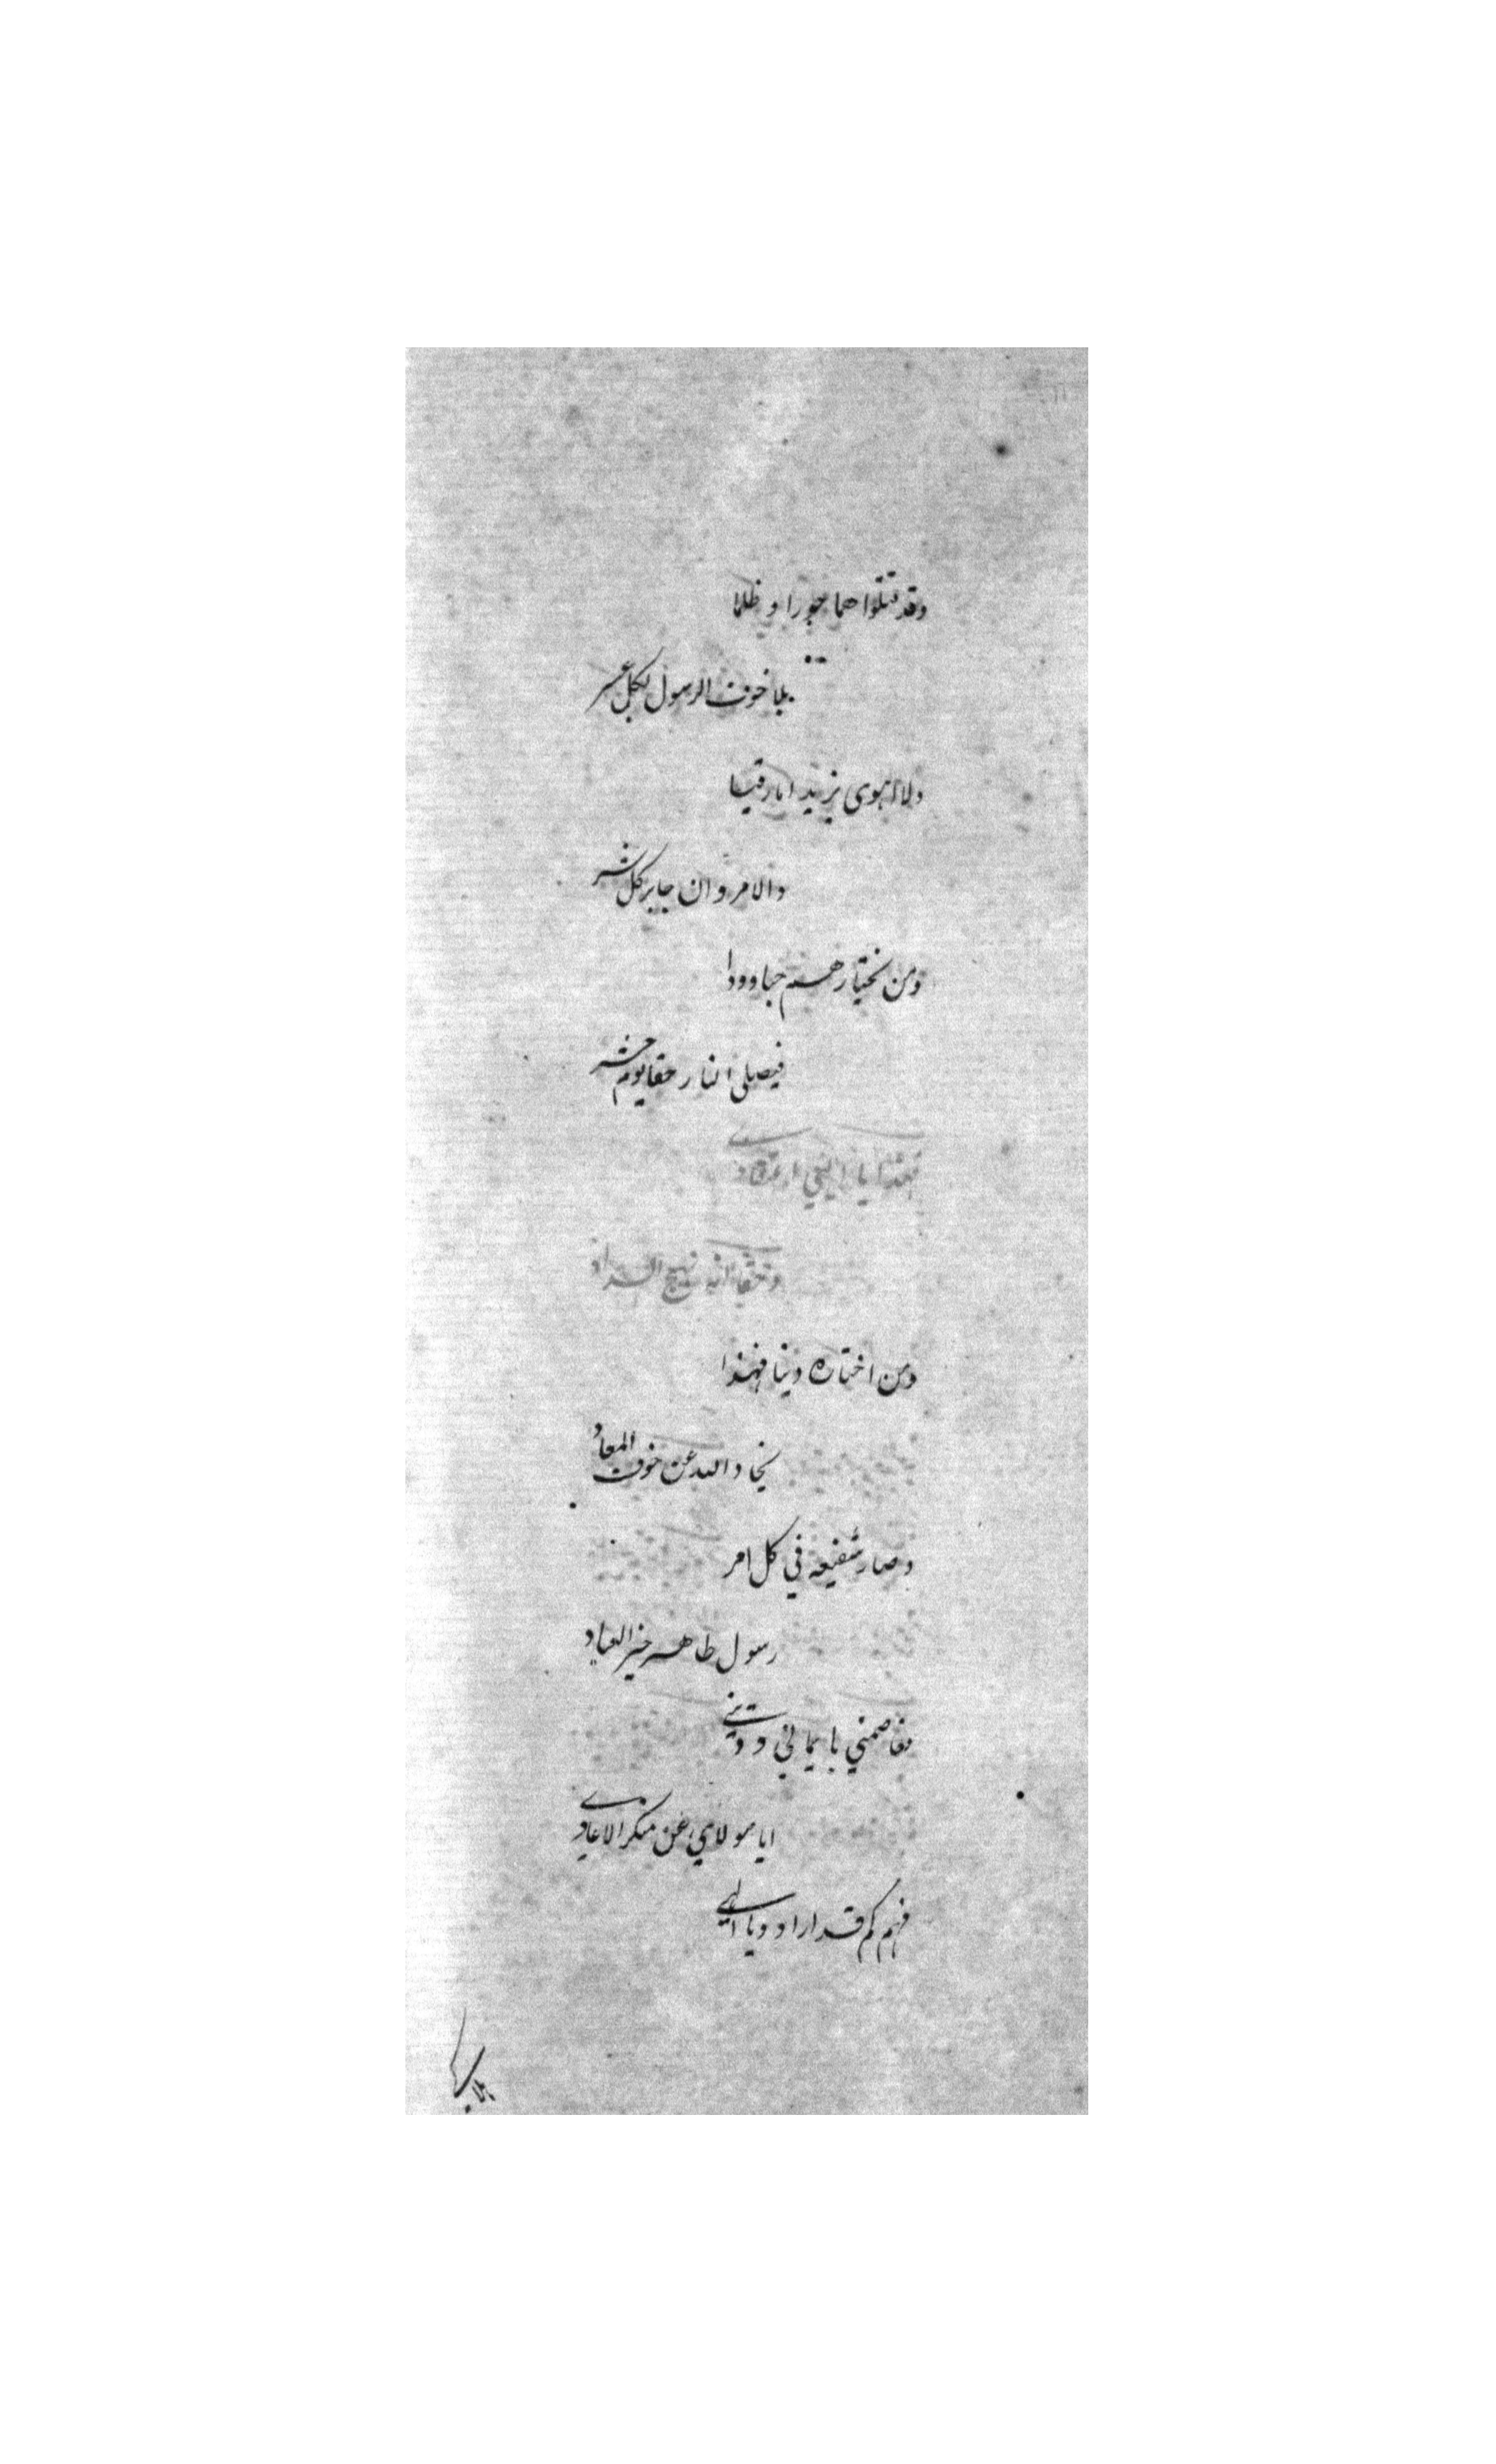 وقد قتلوا هما جورا و ظلما
بلا خوف الرسول لكل عسر
ولا اهوى يزيد اما رقيبا
والا مروان جابر كل شر
ومن يختارهم حبا وودا
فيصلى النار حقا يوم حشر
فهذا يا الهي اعتقادي
وحقا انه نهج السداد
ومن اختاره دينا فهذا
نجاد الله عن خوف المعاد
وصار شفيعه في كل امر
رسول طاهر خير العباد
بايماني وديني
ايا مولاي عن منكر الاعادي
فهم كم قد ارادو يا الهي